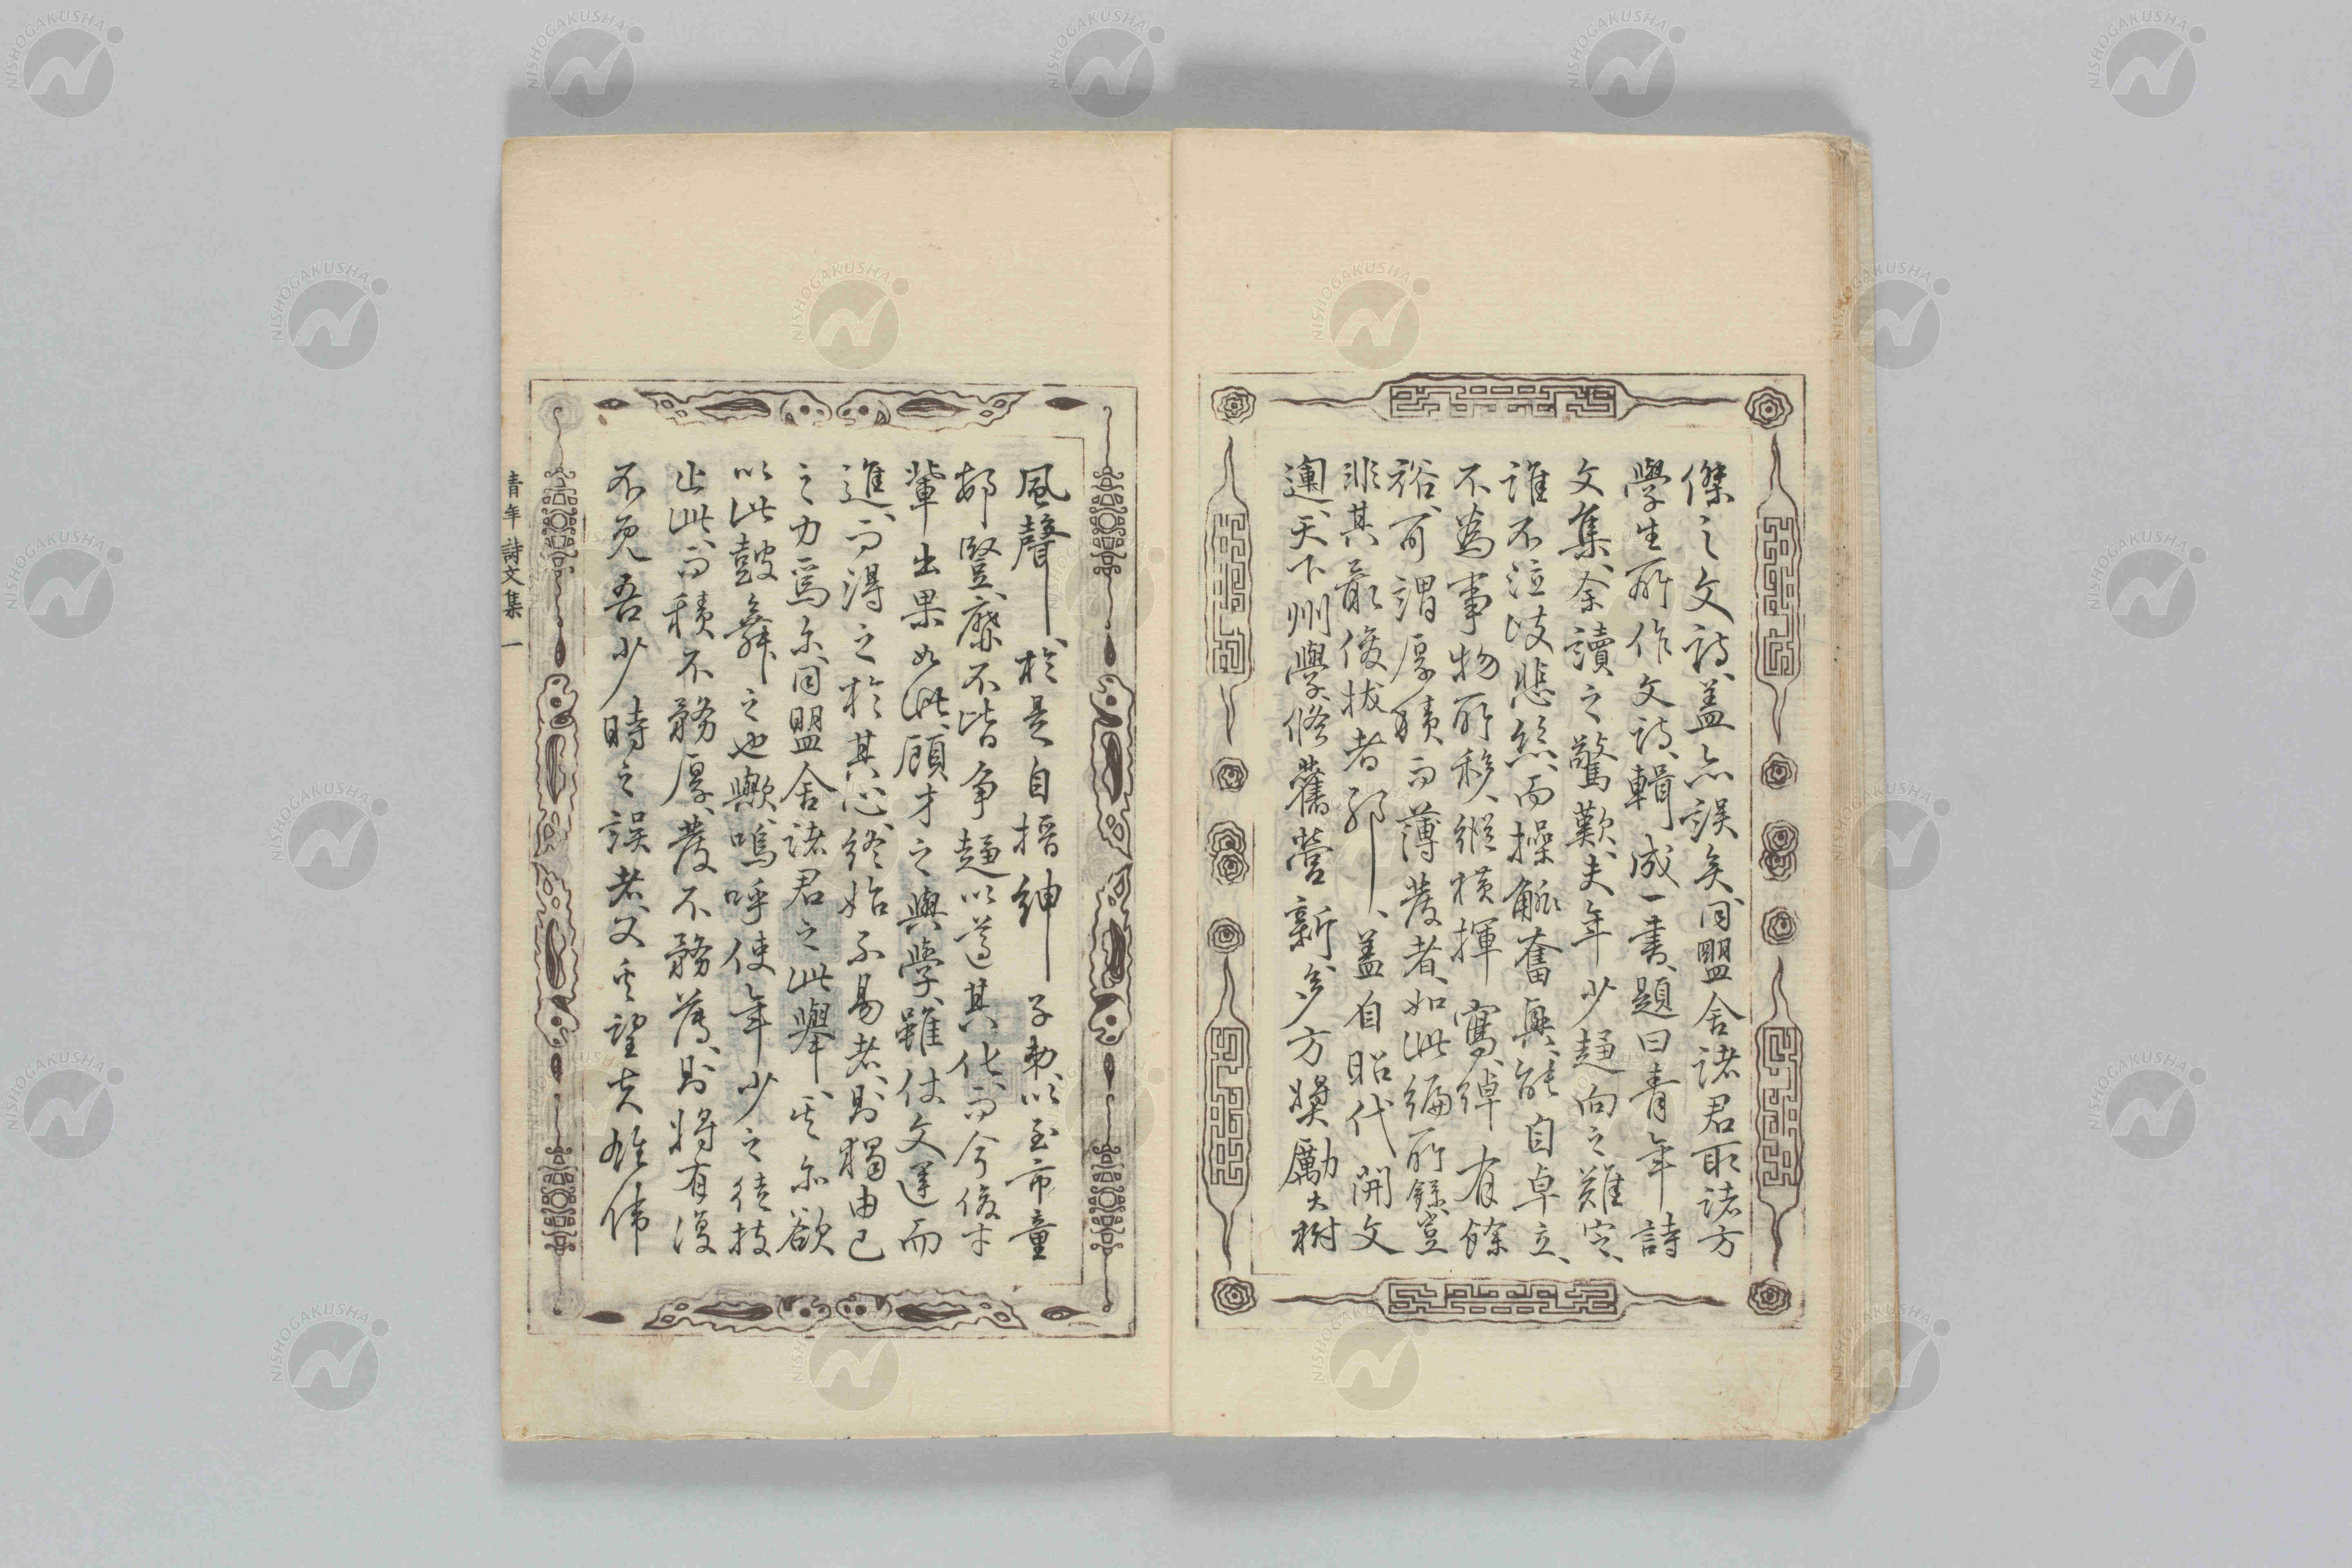 傑之文詩、盖亦誤矣、同盟舍諸君取諸方
學生所作文詩、輯成一書、題曰青年詩
文集、余讀之驚歎、夫年少趣向之難定、
誰不泣岐悲絲、而操觚奮興、能自卓立、
不爲事物所移、縱橫揮寫、綽有餘
裕、可謂厚積而薄發者、如此編所錄豈
非其最俊拔者耶、盖自昭代開文
運、天下州學、修舊營新、多方奬勵、大樹
風聲、於是自搢紳子弟、以至市童
鄙豎、靡不皆爭趨以遵其化、而今俊才
輩出果如此、顧才之與學、雖仗文運而
進、而得之於其心、終始不易者、則獨由己
之力焉尔、同盟舍諸君之此舉、其亦欲
以此鼓舞之也歟、嗚呼使年少之徒技
止此、而積不務厚、發不務薄、則將有復
不免吾少時之誤者、又其望夫雄偉
青年詩文集 一
NISHOGAKUSHA